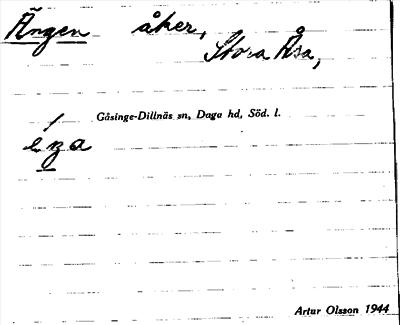 Ängen åker, Stora Åsa,
Gåsinge-Dillnäs sn, Daga hd, Söd. l.
Artur Olsson 1944